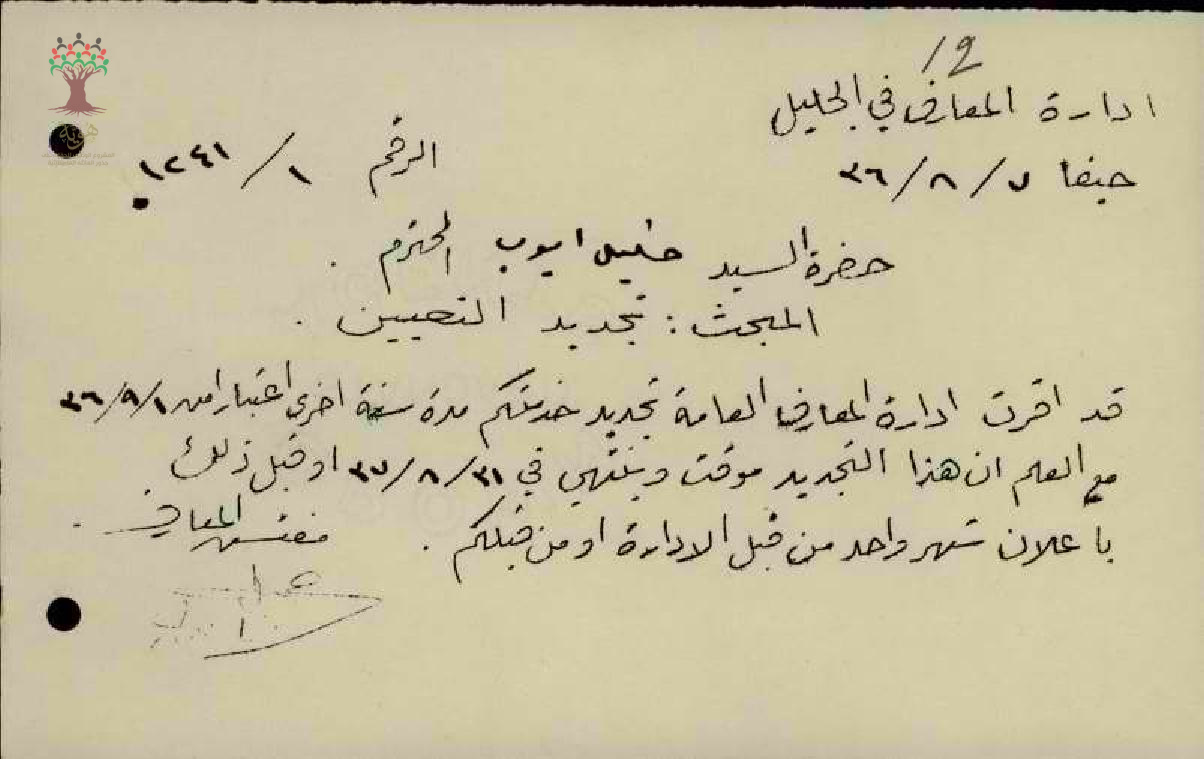 12
ادارة المعارف في الجليل
حيفا ٧/٨/٣٦
الرقم ١/١٢٤١
حضرة السيد خليل ايوب المحترم .
المبحث : تجديد التعيين .
قد اقرت ادارة المعارف العامة تجديد خدمتكم مدة سنة اخرى اعتبارا من ٣٦/٩/١
مع العلم ان هذا التجديد موقت وينتهي في ٣٧/٨/٣١ او قبل ذلك
باعلان شهر واحد من قبل الادارة او من قبلكم .
مفتش المعارف .
هوية